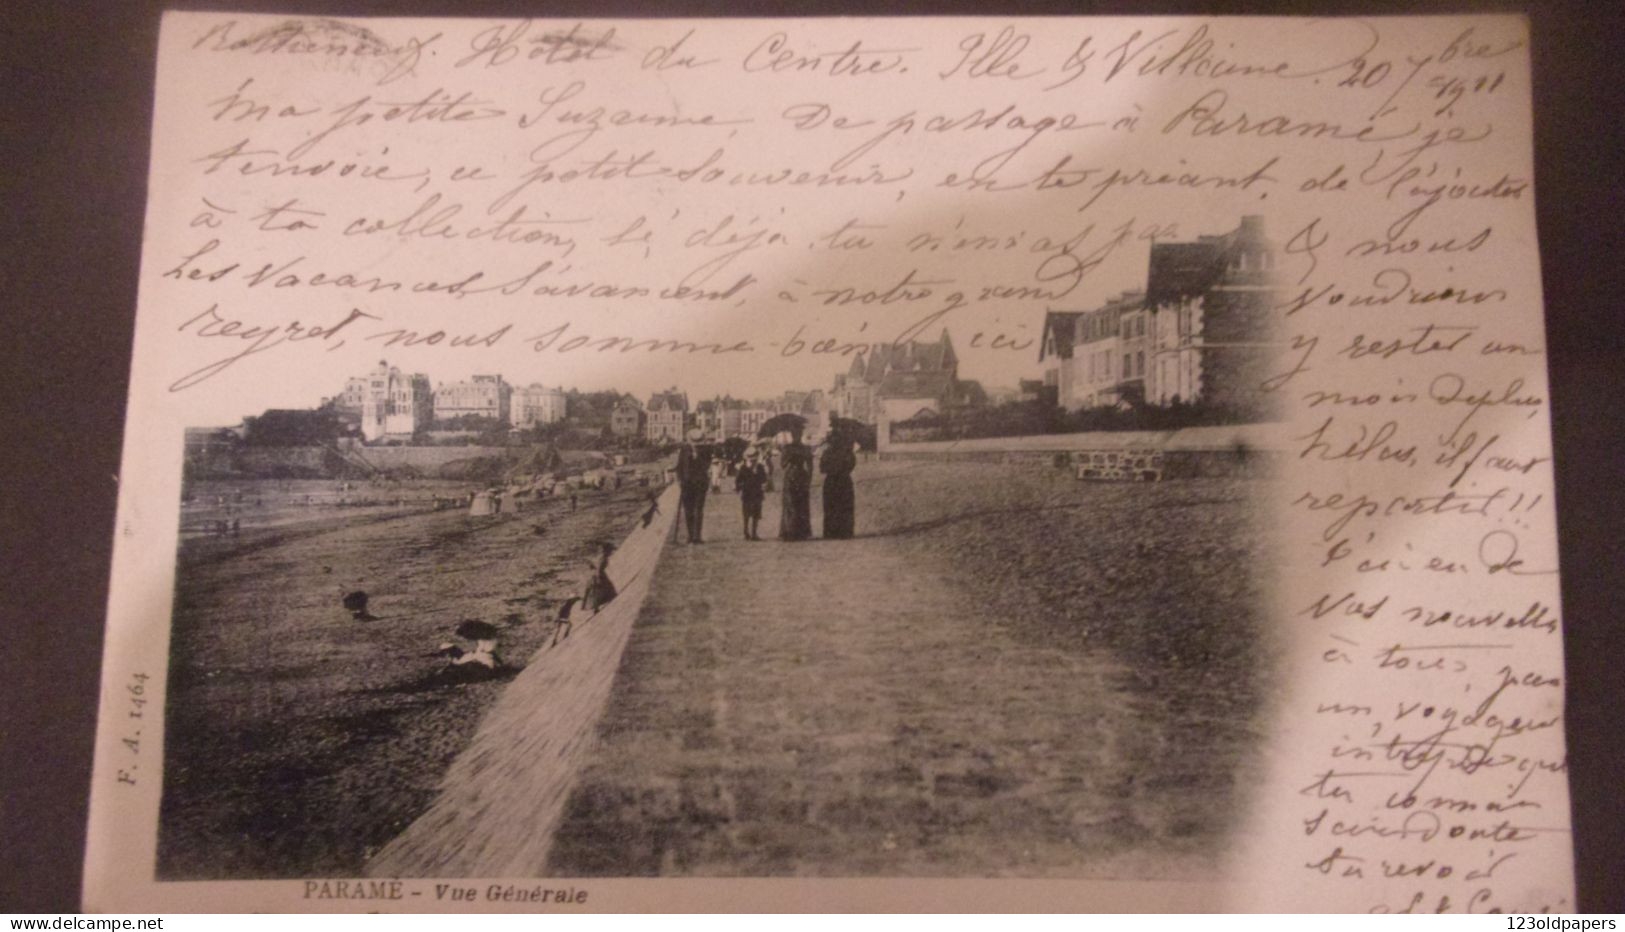 Rothéneuf. Hôtel du Centre. Ille & Villaine. 20 7bre 1911
Ma petite Suzanne, De passage à Paramé, je
t'envoie, ce petit souvenir, en te priant, de l'ajouter
à ta collection, si déjà tu n'en as pas
Les vacances s'avancent, à notre grand
regret, nous somme bien ici
& nous
voudrions
y rester un
mois de plus,
hélas, il faut
repartir!!
J'ai eu de
vos nouvelles
à tous, par
un, voyageur
intrepide que
tu connais
sans doute
Au revoir
PARAMÉ - Vue Générale
F. A. 1464
delcampe.net
123oldpapers